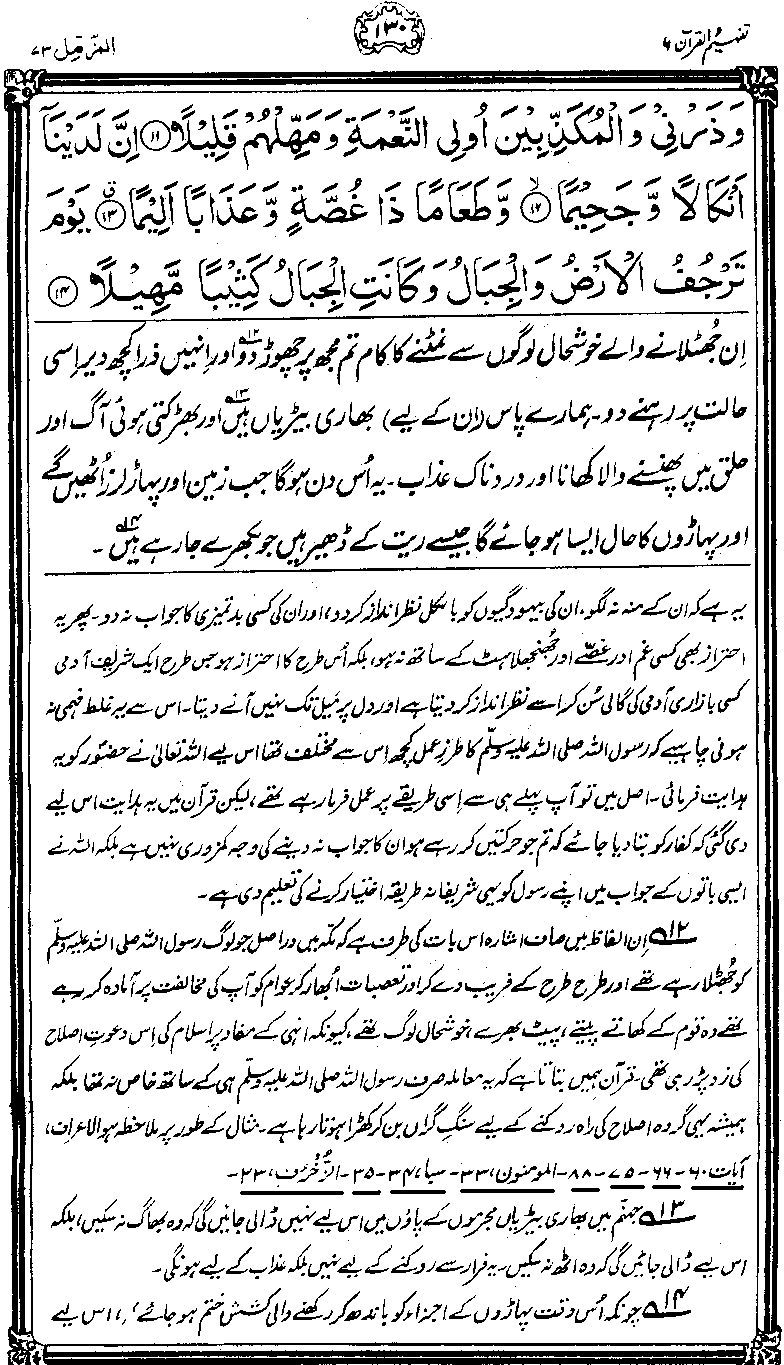 تفہیم القرآن ۶
۱۳۰
المزّمّل ۷۳
وَذَرْنِيْ وَالْمُكَذِّبِيْنَ اُولِي النَّعْمَةِ وَمَهِّلْهُمْ قَلِيْلًا ۝۱۱ اِنَّ لَدَيْنَآ
اَنْكَالًا وَّجَحِيْمًا ۝۱۲ۙ وَّطَعَامًا ذَا غُصَّةٍ وَّعَذَابًا اَلِيْمًا ۝۱۳ۤ يَوْمَ
تَرْجُفُ الْاَرْضُ وَالْجِبَالُ وَكَانَتِ الْجِبَالُ كَثِيْبًا مَّهِيْلًا ۝۱۴
اِن جھٹلانے والے خوشحال لوگوں سے نمٹنے کا کام تم مجھ پر چھوڑ دو۱۲ اور اِنہیں ذرا کچھ دیر اِسی
حالت پر رہنے دو۔ ہمارے پاس (ان کے لیے) بھاری بیڑیاں ہیں۱۳ اور بھڑکتی ہوئی آگ اور
حلق میں پھنسنے والا کھانا اور دردناک عذاب۔ یہ اُس دن ہوگا جب زمین اور پہاڑ لرز اُٹھیں گے
اور پہاڑوں کا حال ایسا ہو جائے گا جیسے ریت کے ڈھیر ہیں جو بکھرے جا رہے ہیں۱۴۔
یہ ہے کہ ان کے منہ نہ لگو، ان کی بیہودگیوں کو بالکل نظر انداز کر دو، اور ان کی کسی بدتمیزی کا جواب نہ دو۔ پھر یہ
احتراز بھی کسی غم اور غصّے اور جھنجھلاہٹ کے ساتھ نہ ہو، بلکہ اُس طرح کا احتراز ہو جس طرح ایک شریف آدمی
کسی بازاری آدمی کی گالی سُن کر اسے نظر انداز کر دیتا ہے اور دل پر میل تک نہیں آنے دیتا۔ اس سے یہ غلط فہمی نہ
ہونی چاہیے کہ رسول اللہ صلی اللہ علیہ وسلّم کا طرزِ عمل کچھ اس سے مختلف تھا اس لیے اللہ تعالیٰ نے حضورؐ کو یہ
ہدایت فرمائی۔ اصل میں تو آپ پہلے ہی سے اِسی طریقے پر عمل فرما رہے تھے، لیکن قرآن میں یہ ہدایت اس لیے
دی گئی کہ کفار کو بتا دیا جائے کہ تم جو حرکتیں کر رہے ہو ان کا جواب نہ دینے کی وجہ کمزوری نہیں ہے بلکہ اللہ نے
ایسی باتوں کے جواب میں اپنے رسول کو یہی شریفانہ طریقہ اختیار کرنے کی تعلیم دی ہے۔
۱۲؎ اِن الفاظ میں صاف اشارہ اس بات کی طرف ہے کہ مکّہ میں دراصل جو لوگ رسول اللہ صلی اللہ علیہ وسلّم
کو جھٹلا رہے تھے اور طرح طرح کے فریب دے کر اور تعصبات اُبھار کر عوام کو آپ کی مخالفت پر آمادہ کر رہے
تھے وہ قوم کے کھاتے پیتے، پیٹ بھرے، خوشحال لوگ تھے، کیونکہ انہی کے مفاد پر اسلام کی اِس دعوتِ اصلاح
کی زد پڑ رہی تھی۔ قرآن ہمیں بتاتا ہے کہ یہ معاملہ صرف رسول اللہ صلی اللہ علیہ وسلّم ہی کے ساتھ خاص نہ تھا بلکہ
ہمیشہ یہی گروہ اصلاح کی راہ روکنے کے لیے سنگِ گراں بن کر کھڑا ہوتا رہا ہے۔ مثال کے طور پر ملاحظہ ہو الاعراف،
آیات ۶۰۔۶۶۔۷۵۔۸۸۔ المومنون، ۳۳۔ سبا، ۳۴، ۳۵۔ الزُّخْرُف، ۲۳۔
۱۳؎ جہنّم میں بھاری بیڑیاں مجرموں کے پاؤں میں اس لیے نہیں ڈالی جائیں گی کہ وہ بھاگ نہ سکیں، بلکہ
اس لیے ڈالی جائیں گی کہ وہ اٹھ نہ سکیں۔ یہ فرار سے روکنے کے لیے نہیں بلکہ عذاب کے لیے ہونگی۔
۱۴؎ چونکہ اُس وقت پہاڑوں کے اجزاء کو باندھ کر رکھنے والی کشش ختم ہو جائے گی، اس لیے